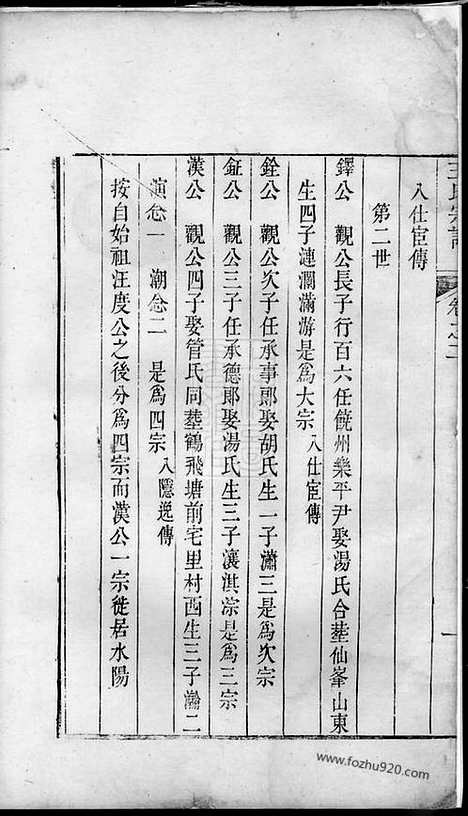 入仕宦傳
第二世
鐸公　觀公長子行百六任饒州樂平尹娶湯氏合塟仙峯山東
生四子漣瀾滿游是爲大宗 入仕宦傳
銓公　觀公次子任承事郎娶胡氏生一子瀟三是爲次宗
鉦公　觀公三子任承德郎娶湯氏生三子瀼淇淙是爲三宗
漢公　觀公四子娶管氏同塟鶴飛塘前宅里村西生三子瀚二
演念一　潮念二　是爲四宗 入隱逸傳
按自始祖汪度公之後分爲四宗而漢公一宗徙居水陽
卷之二
一
www.fozhu920.com